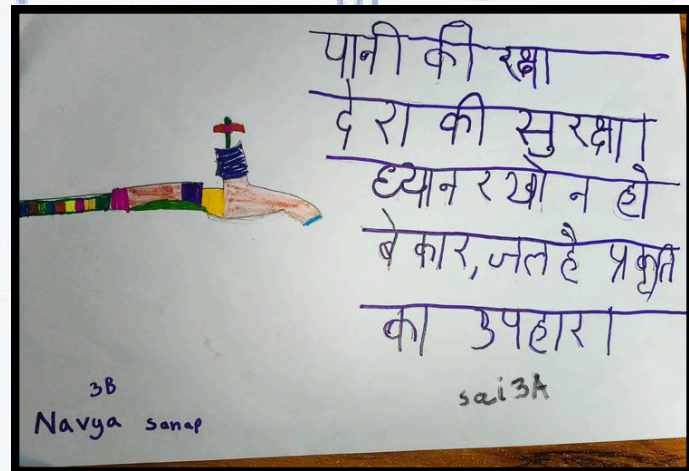 पानी की रक्षा
देश की सुरक्षा।
ध्यान रखो न हो
बेकार, जल है प्रकृति
का उपहार।
sai 3A
3B
Navya Sanap